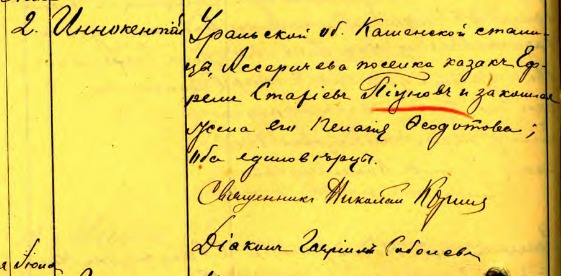 2. Иннокентій
Уральской об. Каменской стани-
ца, поселка казакъ Еф-
ремъ Піуновъ и законная
жена его Пелагія Ѳеодотова;
оба единоверцы.
Священникъ Николай
Діаконъ Гавріилъ Соболевъ